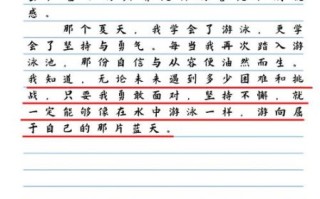 感。
那个夏天，我学会了游泳，更学
会了坚持与勇气。每当我再次踏入游
泳池，那份自信与从容便油然而生。
我知道，无论未来遇到多少困难和挑
战，只要我勇敢面对，坚持不懈，就
一定能够像在水中游泳一样，游向属
于自己的那片蓝天。